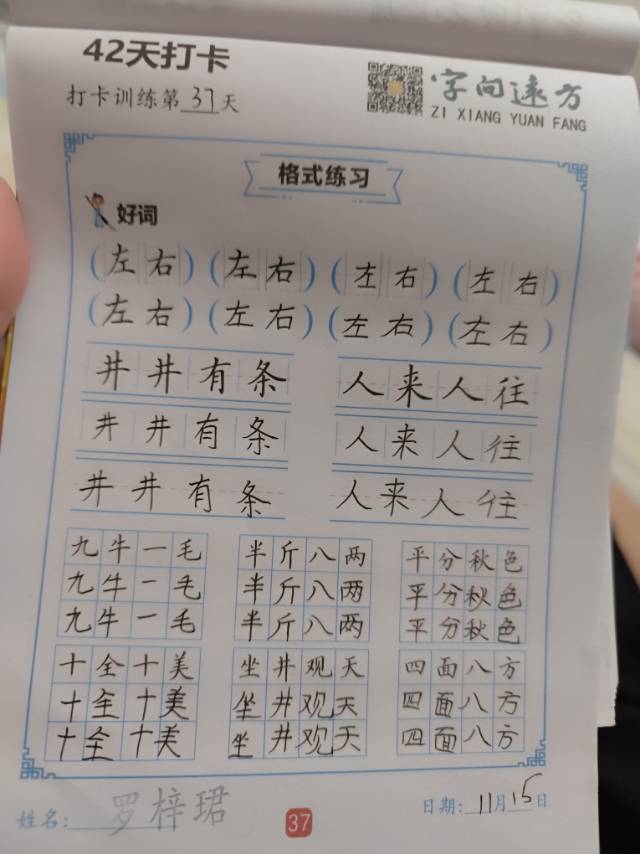 42天打卡
打卡训练第37天
字向遠方
ZI XIANG YUAN FANG
格式练习
好词
(左右)(左右)(左右)(左右)
(左右)(左右)(左右)(左右)
井井有条 人来人往
井井有条 人来人往
井井有条 人来人往
九牛一毛 半斤八两 平分秋色
九牛一毛 半斤八两 平分秋色
九牛一毛 半斤八两 平分秋色
十全十美 坐井观天 四面八方
十全十美 坐井观天 四面八方
十全十美 坐井观天 四面八方
姓名:罗梓珺 37 日期:11月15日